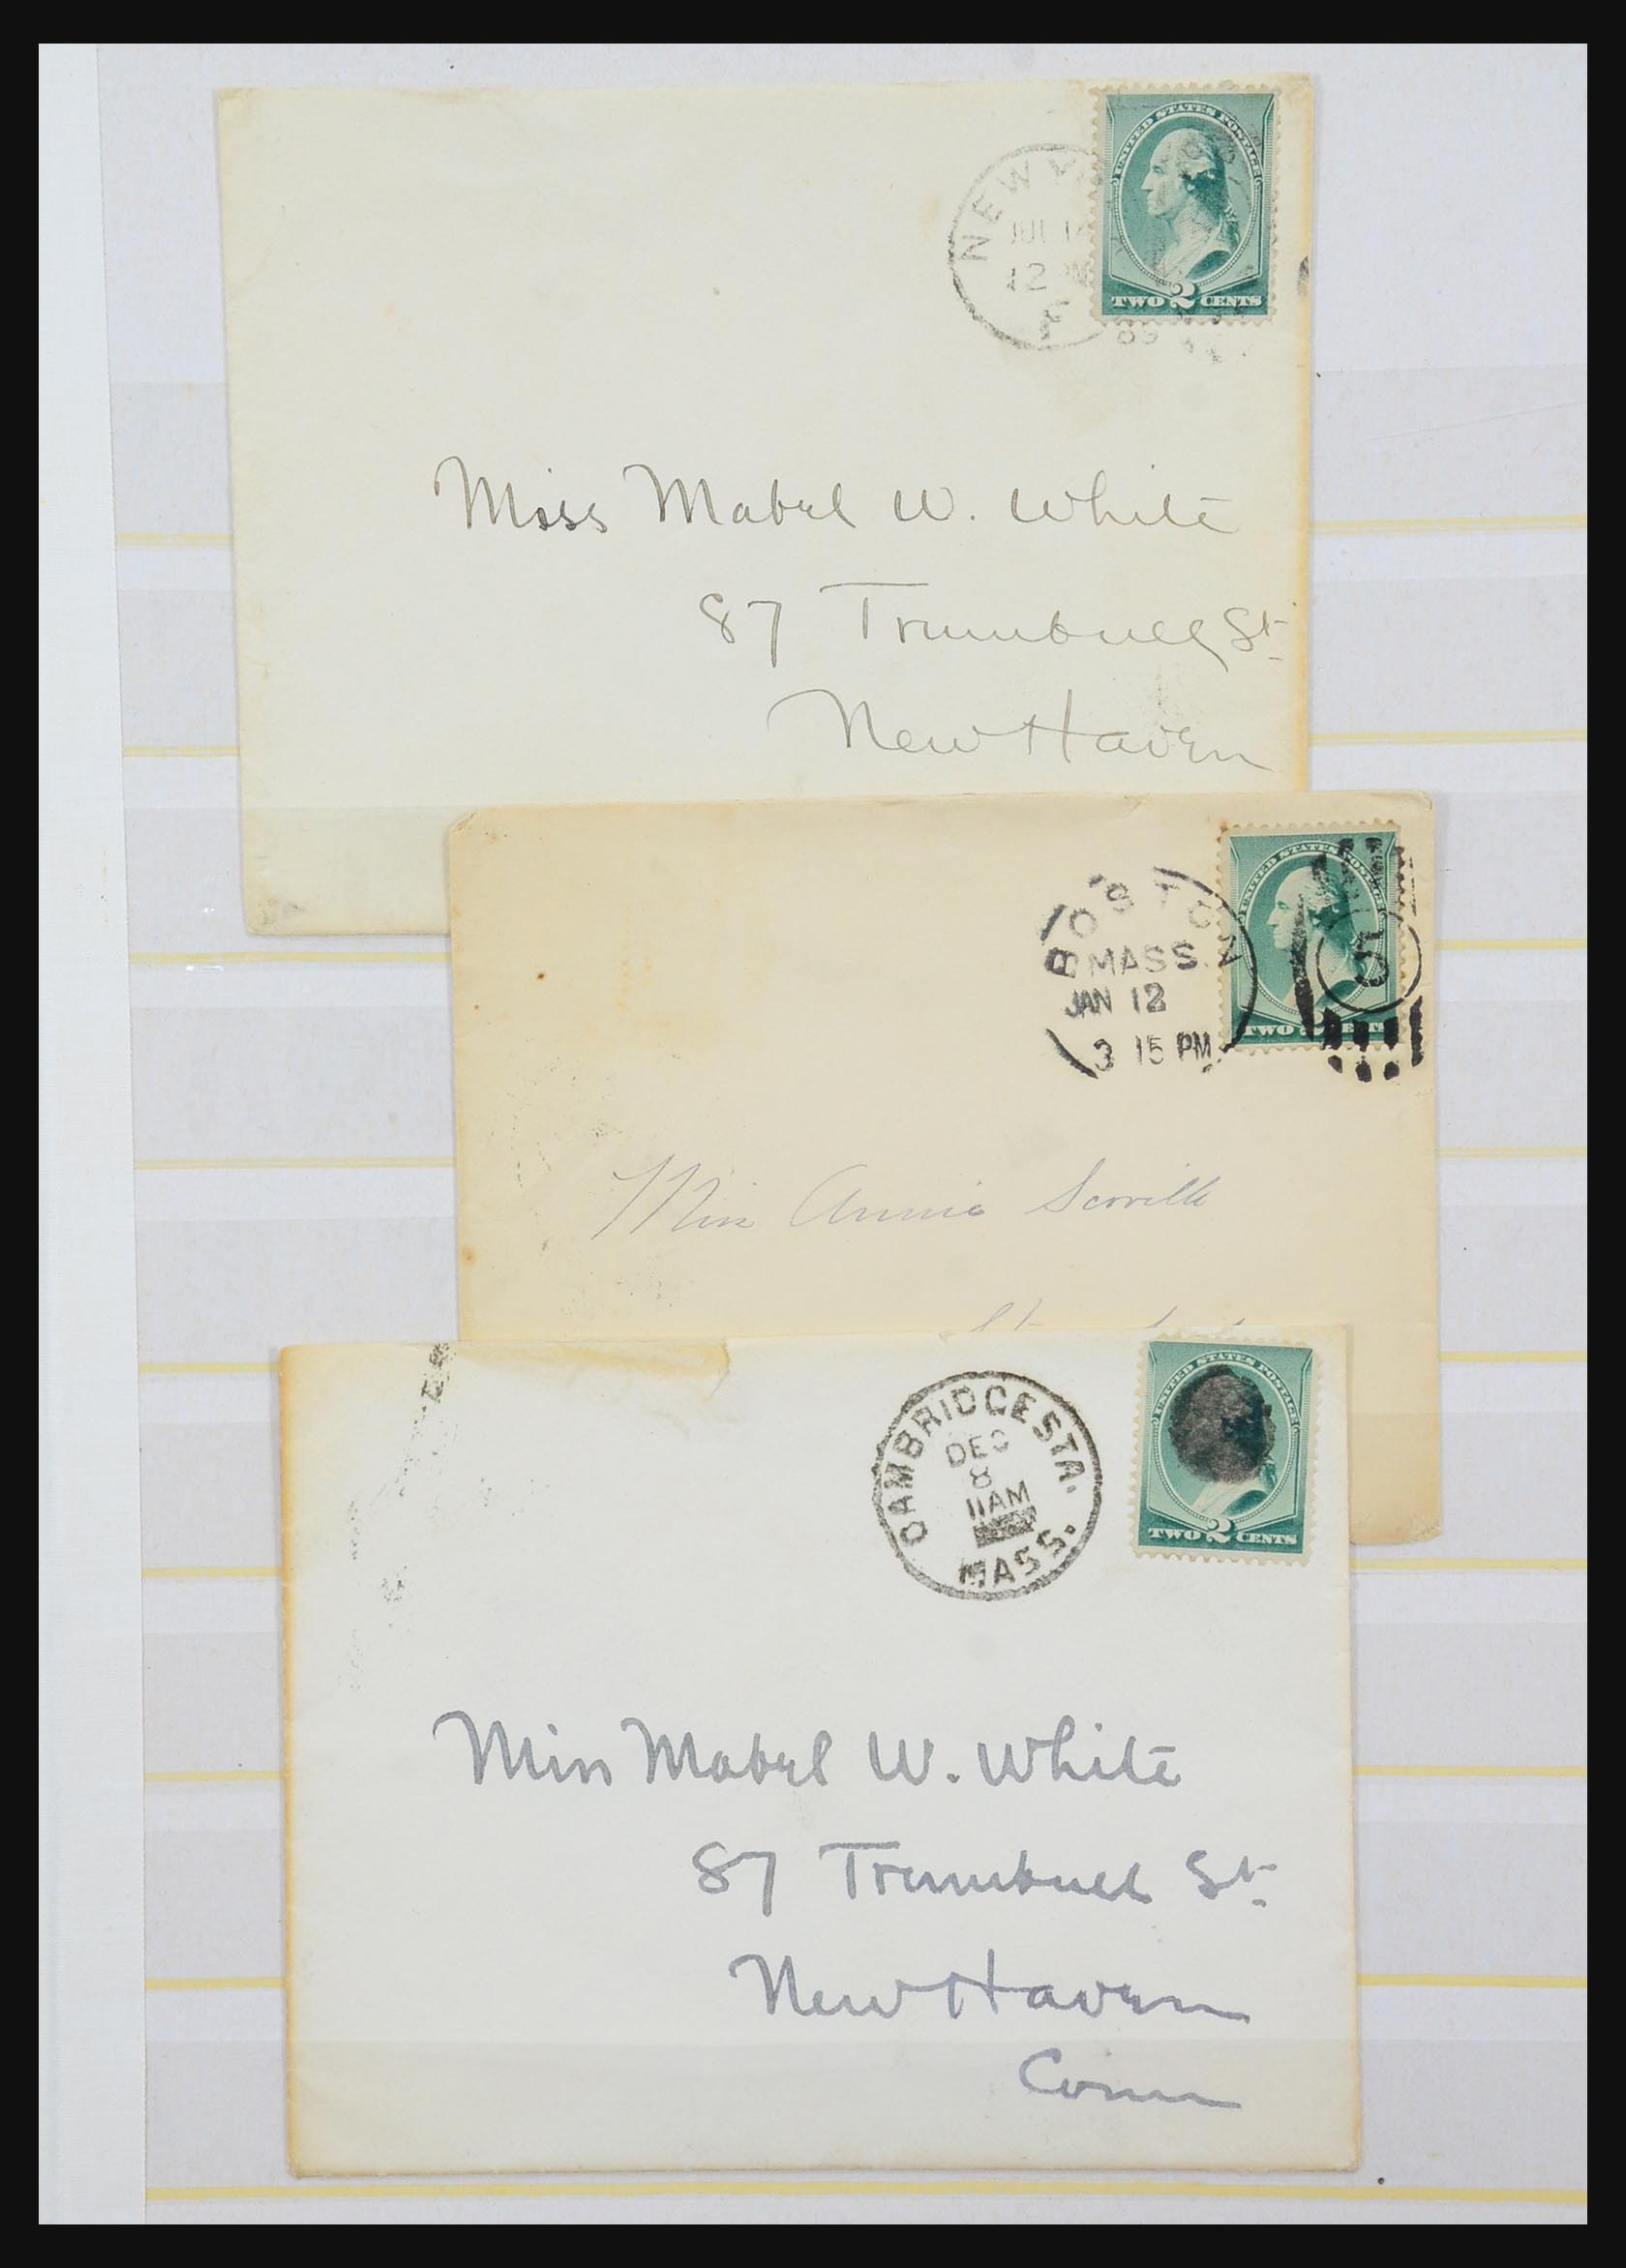 UNITED STATES POSTAGE
TWO 2 CENTS
NEW Y
JUL 14
12 PM
89
Miss Mabel W. White
87 Trumbull St.
New Haven
UNITED STATES POSTAGE
TWO 2 CENTS
BOSTON
MASS.
JAN 12
3 15 PM
5
Miss Annie Scoville
UNITED STATES POSTAGE
TWO 2 CENTS
CAMBRIDGE STA.
DEC
8
11AM
MASS.
Miss Mabel W. White
87 Trumbull St.
New Haven
Conn